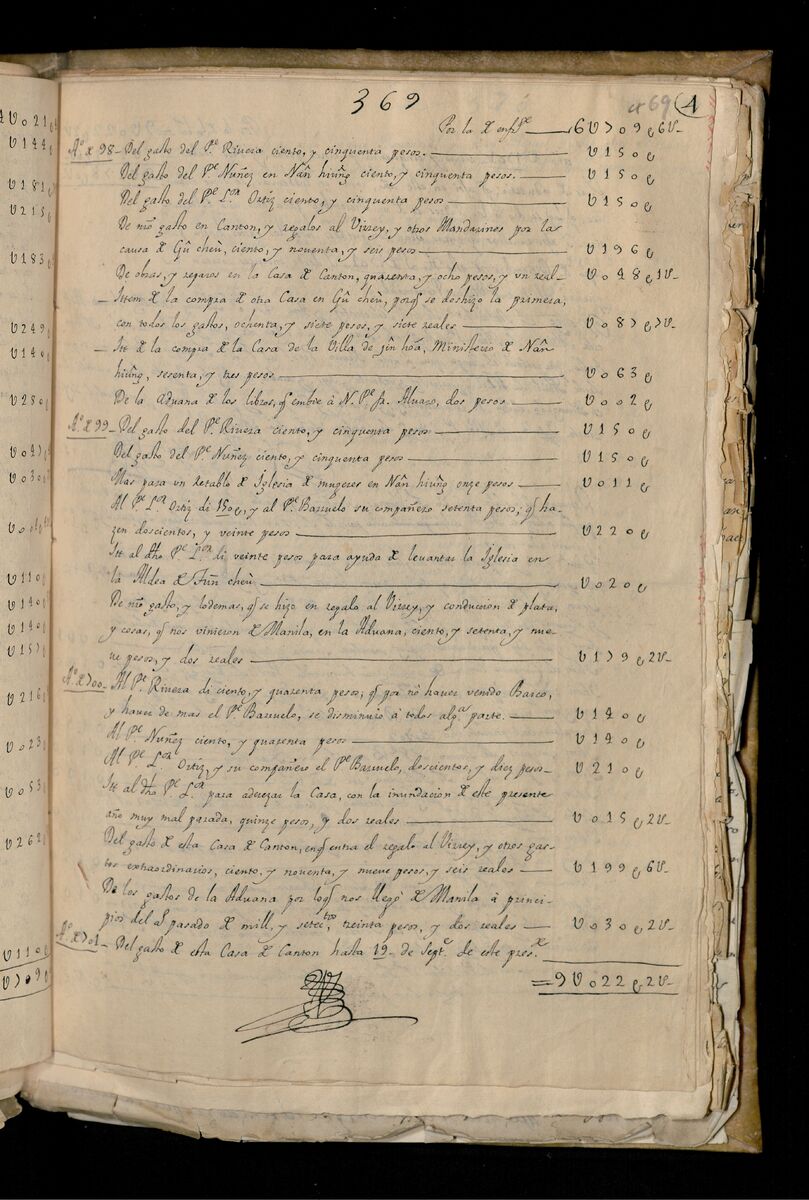 369
69 4
Por la x enfr.te 6U709 e 6U
Aº x 98 - Del gasto del Pe Rivera ciento, y cinquenta pesos. U150 e
Del gasto del Pe Nuñez en Nân hiûng ciento, y cinquenta pesos. U150 e
Del gasto del Pe L.n Ortiz ciento, y cinquenta pesos U150 e
De nro gasto en Canton, y regalos al Virrey, y otros Mandarines por las
causa x Gû cheu, ciento, y noventa, y seis pesos U196 e
De obras, y reparos en la Casa x Canton, quarenta, y ocho pesos, y un real U048 e 1U
Ittem x la compra x otra Casa en Gû cheu, porq se deshizo la primera,
con todos los gastos, ochenta, y siete pesos, y siete reales U087 e 7U
Itt x la compra x la Casa de la Villa de Jin hoá, Ministerio x Nân
hiûng, sesenta, y tres pesos U063 e
De la aduana x los libros, q embie à N. Pe fr. Alvaro, dos pesos U002 e
Aº x 99 - Del gasto del Pe Rivera ciento, y cinquenta pesos U150 e
Del gasto del Pe Nuñez ciento, y cinquenta pesos U150 e
Mas para un retablo x Iglesia x mugeres en Nân hiûng onze pesos U011 e
Al Pe L.n Ortiz di 150 e, y al Pe Barruelo su compañero setenta pesos; q ha-
zen doscientos, y veinte pesos U220 e
Itt al dho Pe L.n di veinte pesos para ayuda x levantar la Iglesia en
la Aldea x Fun cheu U020 e
De nro gasto, y lodemas, q se hizo en regalo al Virrey, y conducion x plata,
y cosas, q nos vinieron x Manila, en la Aduana, ciento, y setenta, y nue-
ve pesos, y dos reales U179 e 2U
Aº x 700 - Al Pe Rivera di ciento, y quarenta pesos; q por no haver venido Barco,
y haver de mas el Pe Barruelo, se disminuio à todos alga parte. U140 e
Al Pe Nuñez ciento, y quarenta pesos U140 e
Al Pe L.n Ortiz, y su compañero el Pe Barruelo, doscientos, y diez pesos U210 e
Itt al dho Pe L.n para aderezar la Casa, con la inundacion x este presente
año muy mal parada, quinze pesos, y dos reales U015 e 2U
Del gasto x esta Casa x Canton, en q entra el regalo al Virrey, y otros gas-
tos extraordinarios, ciento, y noventa, y nueve pesos, y seis reales U199 e 6U
De los gastos de la Aduana por loq nos llegò x Manila à princi-
pios del aº pasado x mill, y setectos, treinta pesos, y dos reales U030 e 2U
Aº x 701 - Del gasto x esta Casa x Canton hasta 19 de Septe de este prese
= 9U022 e 2U